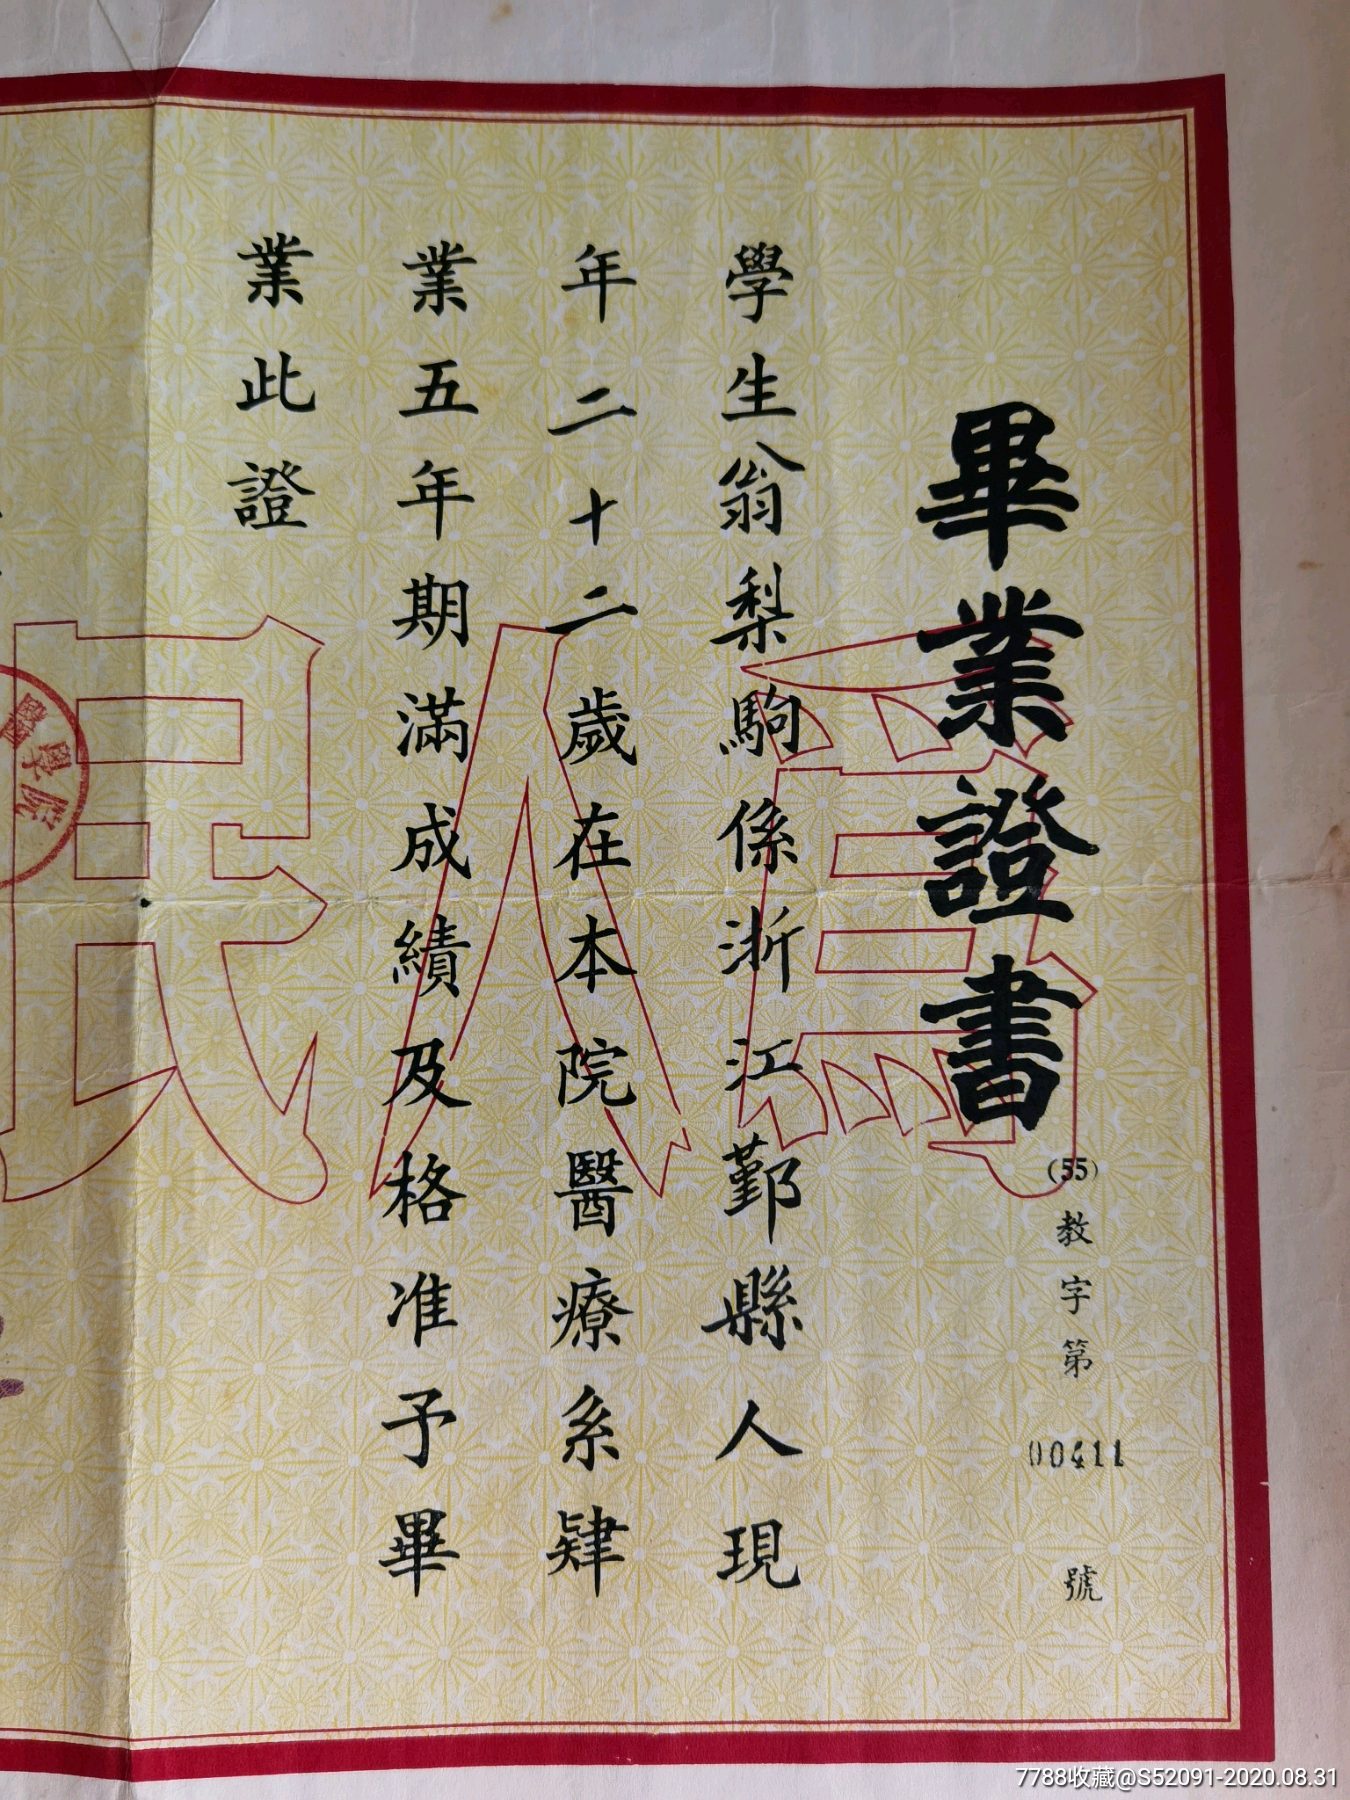 畢業證書
(55)教字第00411號
學生翁梨駒係浙江鄞縣人現
年二十二歲在本院醫療系肄
業五年期滿成績及格准予畢
業此證
爲人民
醫學院
7788收藏@S52091-2020.08.31